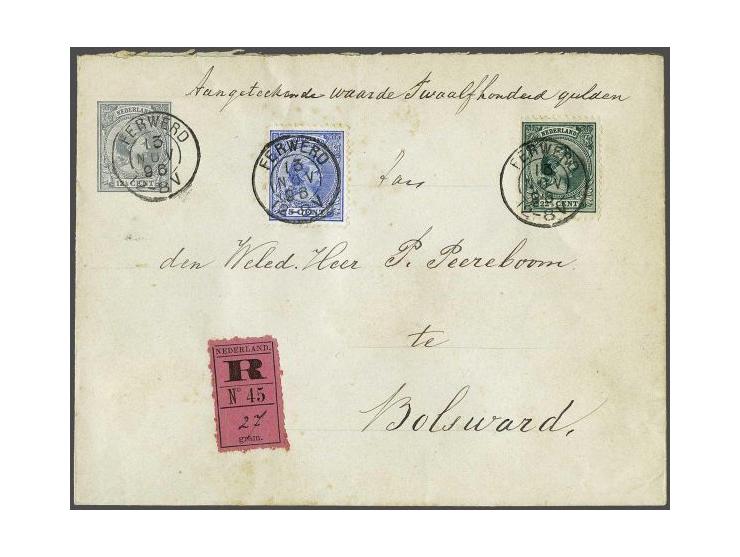 Aangeteekende waarde Twaalfhonderd gulden
NEDERLAND
12½ CENT
FERWERD
13
NOV
96
-8V
NEDERLAND
5 CENT
FERWERD
13
NOV
96
-8V
NEDERLAND
22½ CENT
FERWERD
NOV
12-8V
den Weled. Heer P. Peereboom
te
Bolsward,
NEDERLAND.
R
No 45
27
gram.